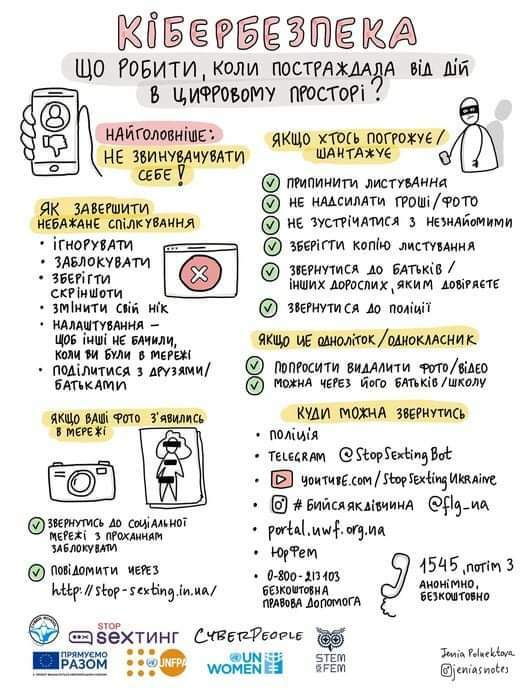 КІБЕРБЕЗПЕКА
ЩО РОБИТИ, КОЛИ ПОСТРАЖДАЛА ВІД ДІЙ
В ЦИФРОВОМУ ПРОСТОРІ?
НАЙГОЛОВНІШЕ:
НЕ ЗВИНУВАЧУВАТИ
СЕБЕ!
ЯК ЗАВЕРШИТИ
НЕБАЖАНЕ СПІЛКУВАННЯ
• ІГНОРУВАТИ
• ЗАБЛОКУВАТИ
• ЗБЕРІГТИ
СКРІНШОТИ
• ЗМІНИТИ СВІЙ НІК
• НАЛАШТУВАННЯ –
ЩОБ ІНШІ НЕ БАЧИЛИ,
КОЛИ ВИ БУЛИ В МЕРЕЖІ
• ПОДІЛИТИСЯ З ДРУЗЯМИ/
БАТЬКАМИ
ЯКЩО ХТОСЬ ПОГРОЖУЄ/
ШАНТАЖУЄ
ПРИПИНИТИ ЛИСТУВАННЯ
НЕ НАДСИЛАТИ ГРОШІ/ФОТО
НЕ ЗУСТРІЧАТИСЯ З НЕЗНАЙОМИМИ
ЗБЕРІГТИ КОПІЮ ЛИСТУВАННЯ
ЗВЕРНУТИСЯ ДО БАТЬКІВ /
ІНШИХ ДОРОСЛИХ, ЯКИМ ДОВІРЯЄТЕ
ЗВЕРНУТИСЯ ДО ПОЛІЦІЇ
ЯКЩО ЦЕ ОДНОЛІТОК/ОДНОКЛАСНИК
ПОПРОСИТИ ВИДАЛИТИ ФОТО/ВІДЕО
МОЖНА ЧЕРЕЗ ЙОГО БАТЬКІВ/ШКОЛУ
ЯКЩО ВАШІ ФОТО З'ЯВИЛИСЬ
В МЕРЕЖІ
ЗВЕРНУТИСЬ ДО СОЦІАЛЬНОЇ
МЕРЕЖІ З ПРОХАННЯМ
ЗАБЛОКУВАТИ
ПОВІДОМИТИ ЧЕРЕЗ
http://stop-sexting.in.ua/
КУДИ МОЖНА ЗВЕРНУТИСЬ
• ПОЛІЦІЯ
• TELEGRAM @StopSextingBot
• YOUTUBE.com/StopSextingUkraine
• #БИЙСЯЯКДІВЧИНА @flg_ua
• portal.uwf.org.ua
• ЮрФем
• 0-800-213103
БЕЗКОШТОВНА
ПРАВОВА ДОПОМОГА
1545, ПОТІМ 3
АНОНІМНО,
БЕЗКОШТОВНО
STOP
SEXТИНГ
CYBERPEOPLE
STEM
is FEM
ПРЯМУЄМО
РАЗОМ
UNFPA
UN
WOMEN
Jenia Poluektova
@jeniasnotes